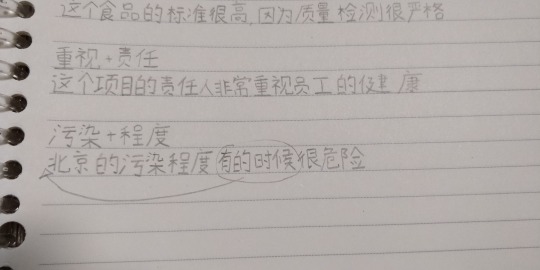 这个食品的标准很高,因为质量检测很严格
重视+责任
这个项目的责任人非常重视员工的健康
污染+程度
北京的污染程度有的时候很危险